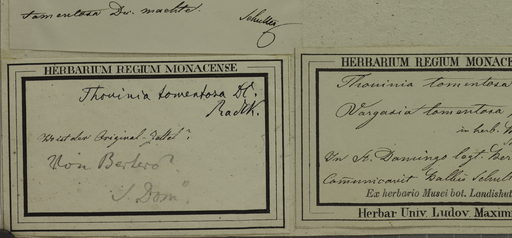 tomentosa Dr. machte.
Schultes
HERBARIUM REGIUM MONACENSE
Thouinia tomentosa DC.
Radlk.
Wo ist der Original-Zettel?
Von Bertero?
S. Dom
HERBARIUM REGIUM MONACE
Thouinia tomentosa
Vargasia tomentosa
in herb.
In St. Domingo legt. Ber
Communicavit Balbis Schult
Ex herbario Musei bot. Landishut
Herbar Univ. Ludov. Maximi